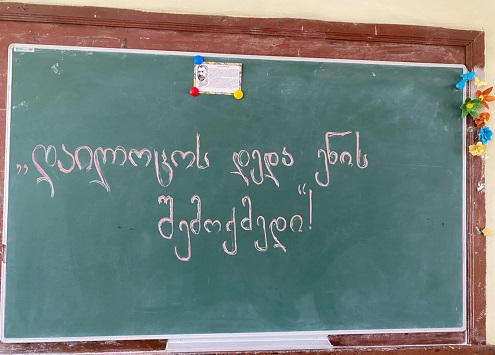 „დაილოცოს დედა ენის
შემოქმედი“!